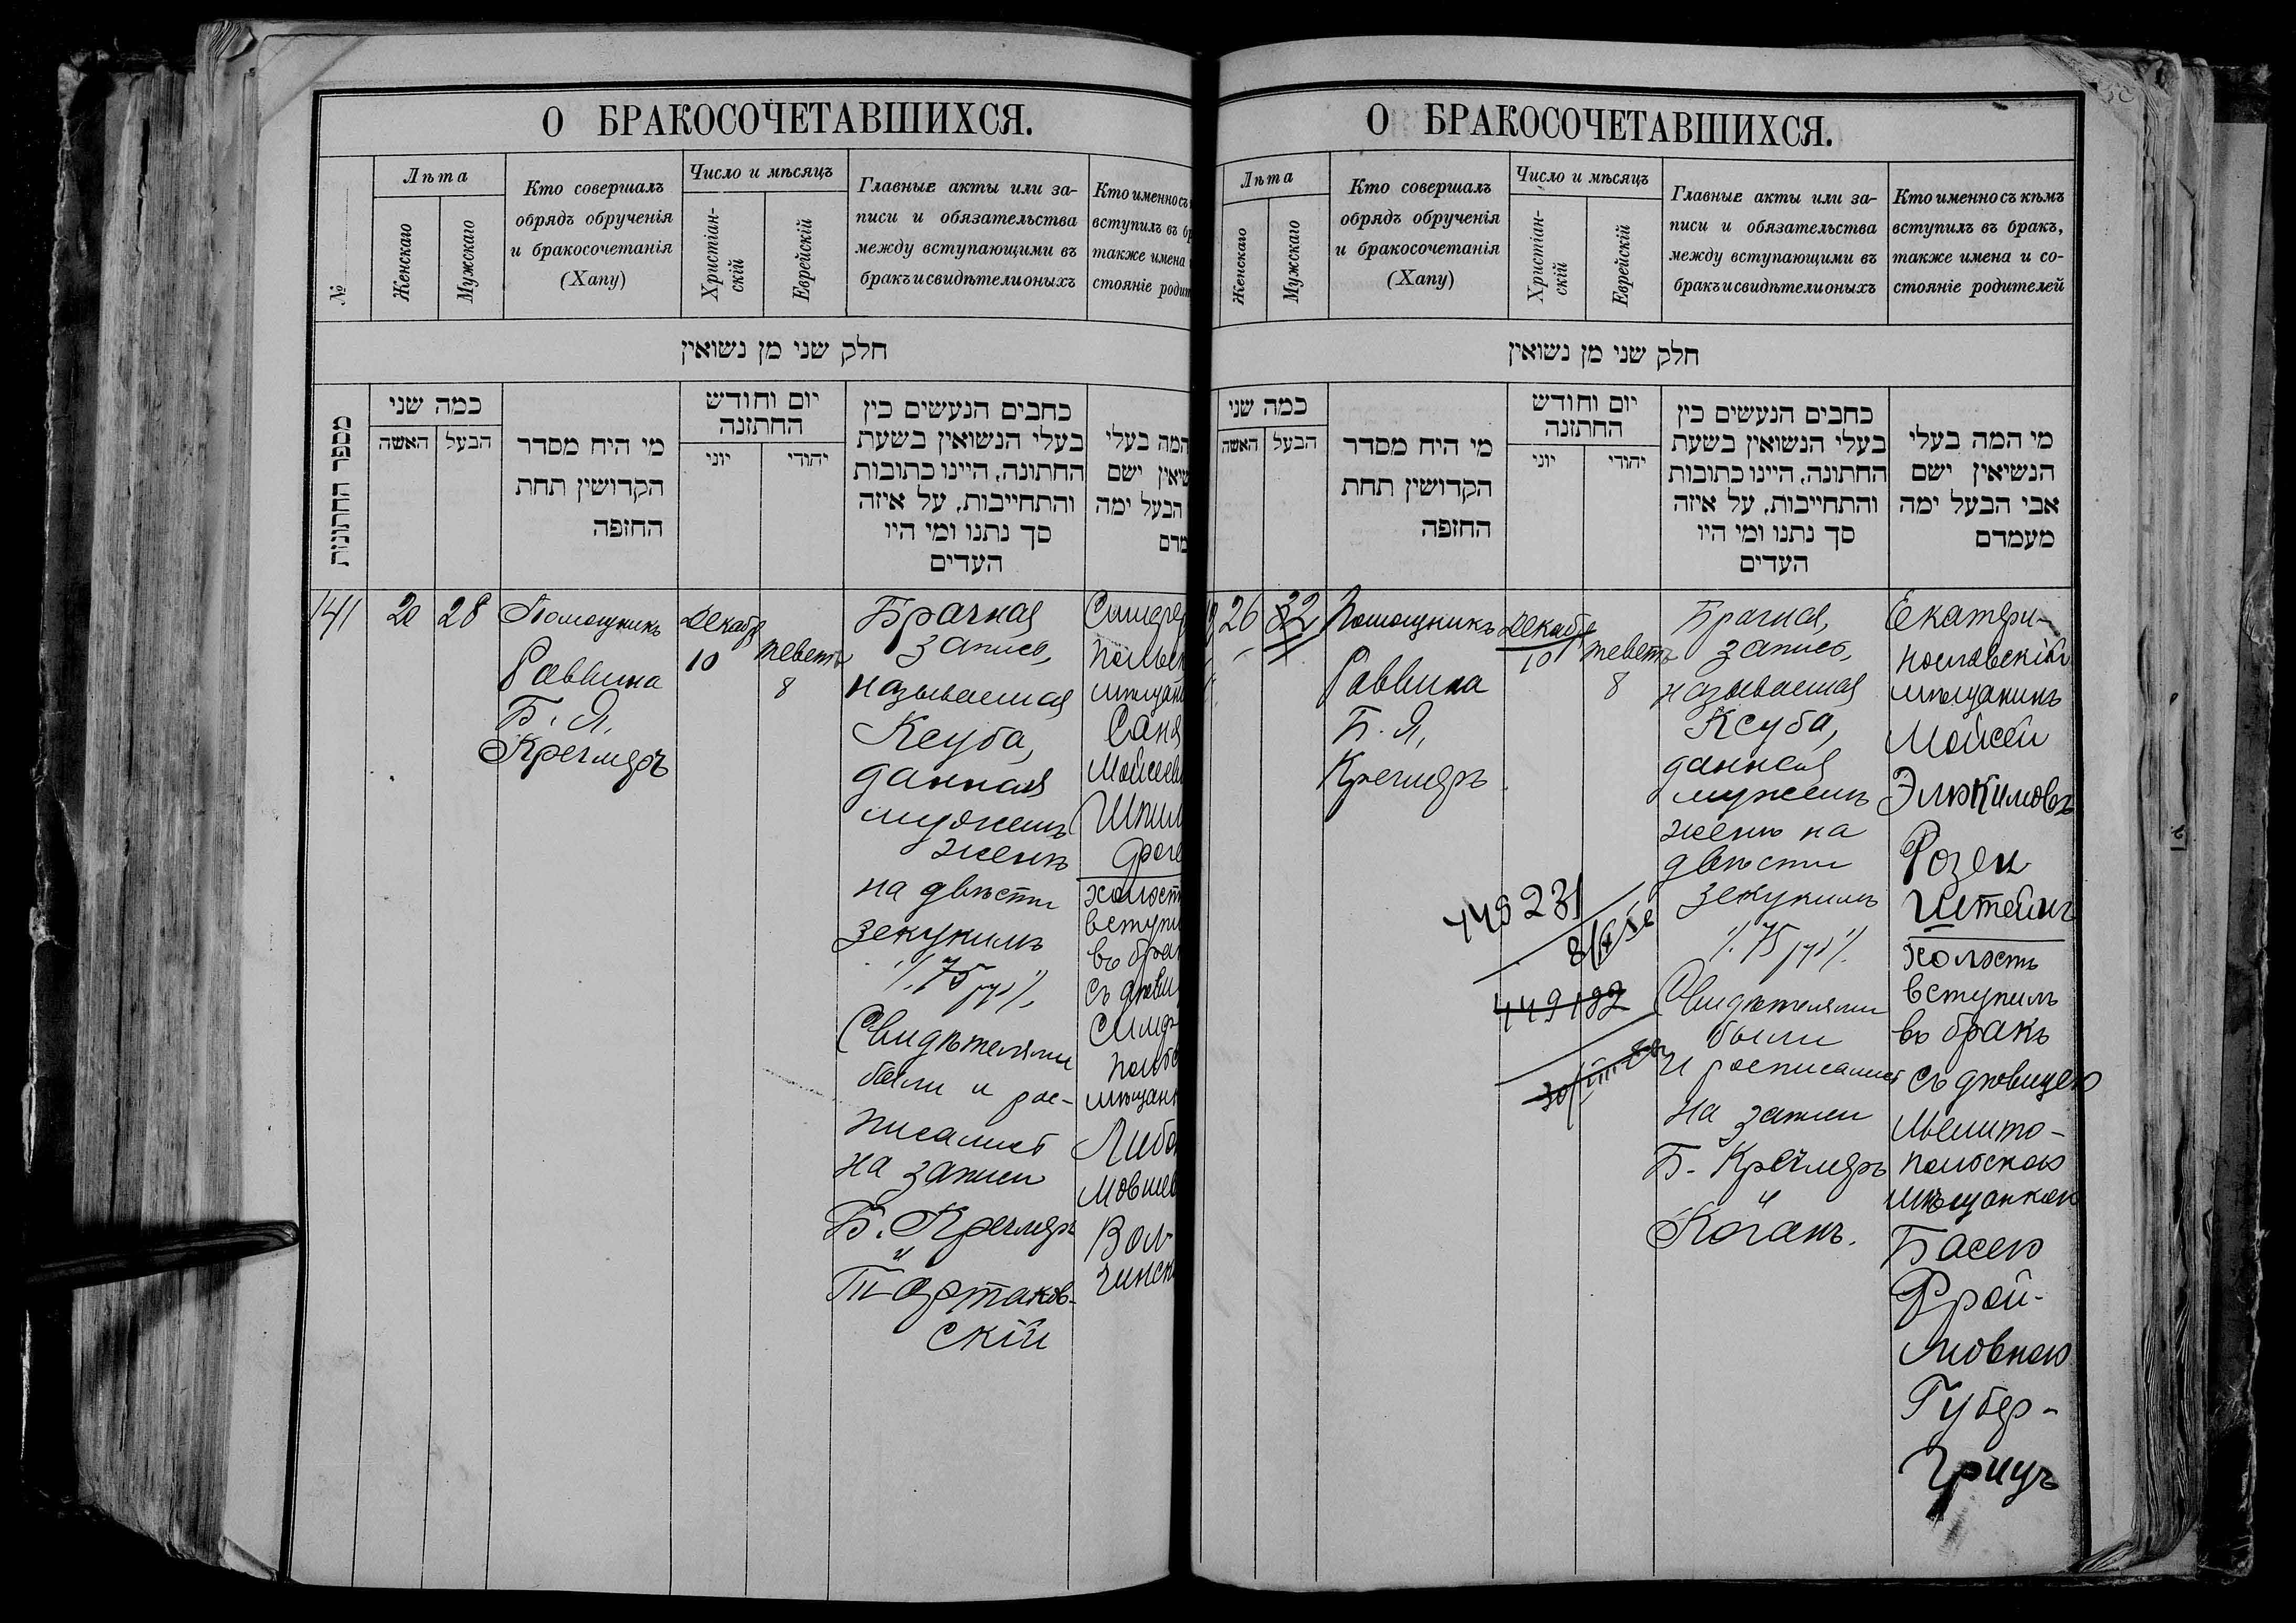 О БРАКОСОЧЕТАВШИХСЯ.
№
Лѣта
Женскаго
Мужскаго
Кто совершалъ
обрядъ обрученія
и бракосочетанія
(Хапу)
Число и мѣсяцъ
Христіан-
скій
Еврейскій
Главные акты или за-
писи и обязательства
между вступающими въ
бракъ и свидѣтели оныхъ
Кто именно съ
вступилъ въ бр
также имена
стояніе родит
חלק שני מן נשואין
מספר החתונות
כמה שני
האשה
הבעל
מי היח מסדר
הקדושין תחת
החזפה
יום וחודש
החתזנה
יוני
יהודי
כחבים הנעשים כין
בעלי הנשואין בשעת
החתונה, היינו כתובות
והתחייבות, על איזה
סך נתנו ומי היו
העדים
המה בעלי
שיאין ישם
הבעל ימה
מדם
141
20
28
Помощникъ
Раввина
Б. Я.
Кречмеръ
Декабр
10
теветъ
8
Брачная
запись,
называемая
Ксуба,
данная
мужемъ
женѣ
на двѣсти
зекукимъ
75 ру
Свидѣтелями
были и рос-
писались
на записи
Б. Кречмеръ
и
Тартаков-
скій
Симфер
польск
мѣщан
Саня
Мойсеев
Шпил
фоге
холост
вступи
въ бра
съ дѣви
Симф
польс
мѣщан
Либо
Мовшев
Вол-
чинск
О БРАКОСОЧЕТАВШИХСЯ.
Лѣта
Женскаго
Мужскаго
Кто совершалъ
обрядъ обрученія
и бракосочетанія
(Хапу)
Число и мѣсяцъ
Христіан-
скій
Еврейскій
Главные акты или за-
писи и обязательства
между вступающими въ
бракъ и свидѣтели оныхъ
Кто именно съ кѣмъ
вступилъ въ бракъ,
также имена и со-
стояніе родителей
חלק שני מן נשואין
כמה שני
האשה
הבעל
מי היח מסדר
הקדושין תחת
החזפה
יום וחודש
החתזנה
יוני
יהודי
כחבים הנעשים כין
בעלי הנשואין בשעת
החתונה, היינו כתובות
והתחייבות, על איזה
סך נתנו ומי היו
העדים
מי המה בעלי
הנשיאין ישם
אבי הבעל ימה
מעמדם
26
32
Помощникъ
Раввина
Б. Я,
Кречмеръ
Декабр
10
теветъ
8
449231
449192
Брачная
запись,
называемая
Ксуба,
данная
мужемъ
женѣ на
двѣсти
зекукимъ
75 ру
Свидѣтелями
были
и росписались
на записи
Б. Кречмеръ
и
Коганъ.
Екатери-
нославскій
мѣщанинъ
Мойсей
Элюкимовъ
Розен
Штейнъ
холостъ
вступилъ
въ бракъ
съ дѣвицею
Мелито-
польскою
мѣщанкою
Басею
Фрой-
мовною
Губер-
грицъ